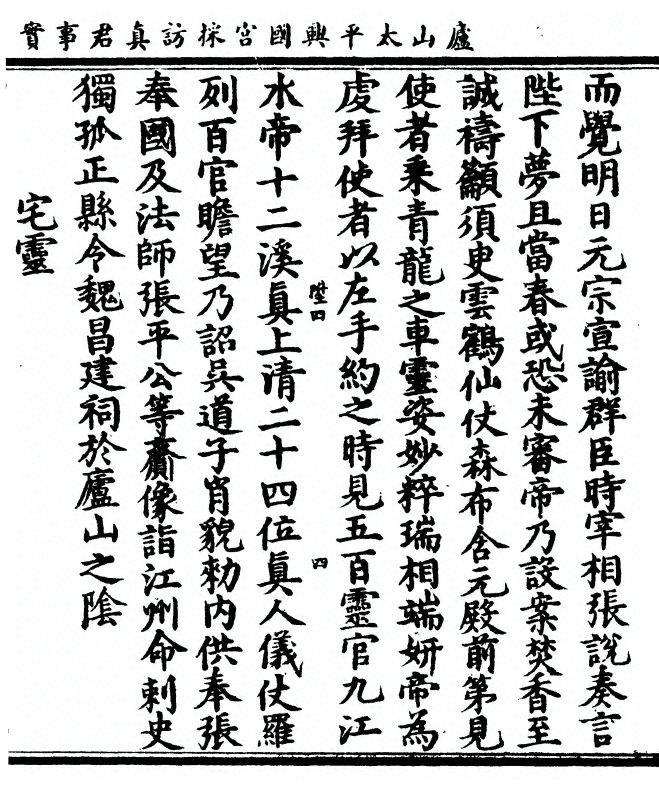 廬山太平興國宮採訪真君事實
而覺明日元宗宣諭群臣時宰相張說奏言
陛下夢且當春或恐未審帝乃設案焚香至
誠禱籲須史雲鶴仙仗森布含元殿前第見
使者乘青龍之車靈姿妙粹瑞相端妍帝為
虔拜使者以左手約之時見五百靈官九江
陞四
四
水帝十二溪真上清二十四位真人儀仗羅
列百官瞻望乃詔吳道子肖貌勑內供奉張
奉國及法師張平公等齎像詣江州命刺史
獨孤正縣令魏昌建祠於廬山之陰
宅靈